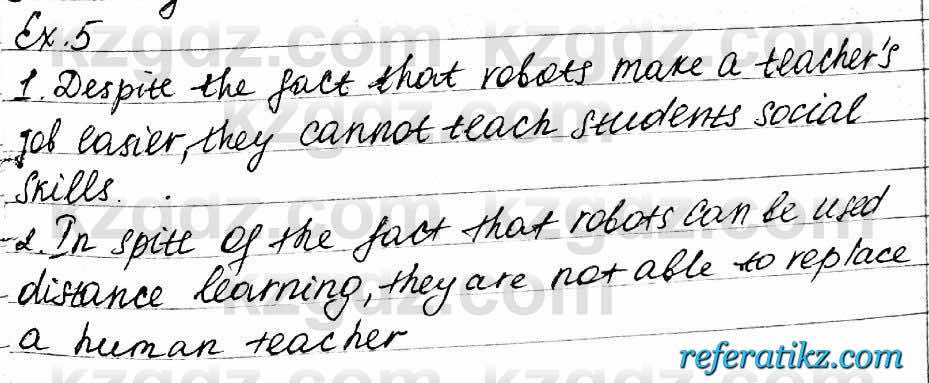 Ex.5
1. Despite the fact that robots make a teacher's
job easier, they cannot teach students social
skills.
2. In spite of the fact that robots can be used
distance learning, they are not able to replace
a human teacher
referatikz.com
kzgdz.com